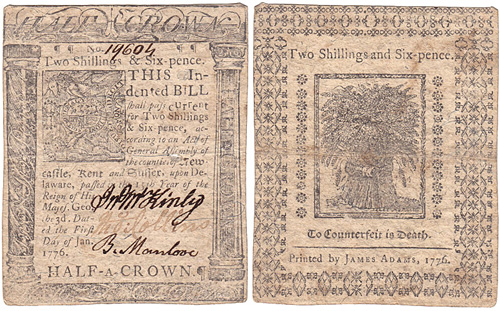 HALF-CROWN
No. 19604
Two Shillings & Six-pence.
THIS In-
dented BILL
shall pass current
for Two Shillings
& Six-pence, ac-
cording to an Act of
General Assembly of
the counties of New-
castle, Kent and Sussex, upon De-
laware, passed in the Year of the
Reign of His
Majes. Geo.
the 3d. Dat-
ed the First
Day of Jan.
1776.
Jno McKinly
B. Manlove
HALF-A-CROWN
Two Shillings and Six-pence.
To Counterfeit is Death.
Printed by JAMES ADAMS, 1776.